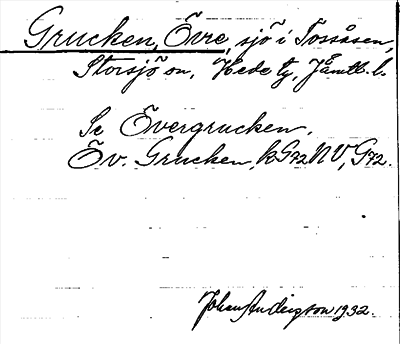 Grucken, Övre, sjö i Tossåsen,
Storsjö sn, Hede tg, Jämtl. l.
Se Övergrucken.
Öv. Grucken, kG72NV, G72.
Johan Anderson 1932.